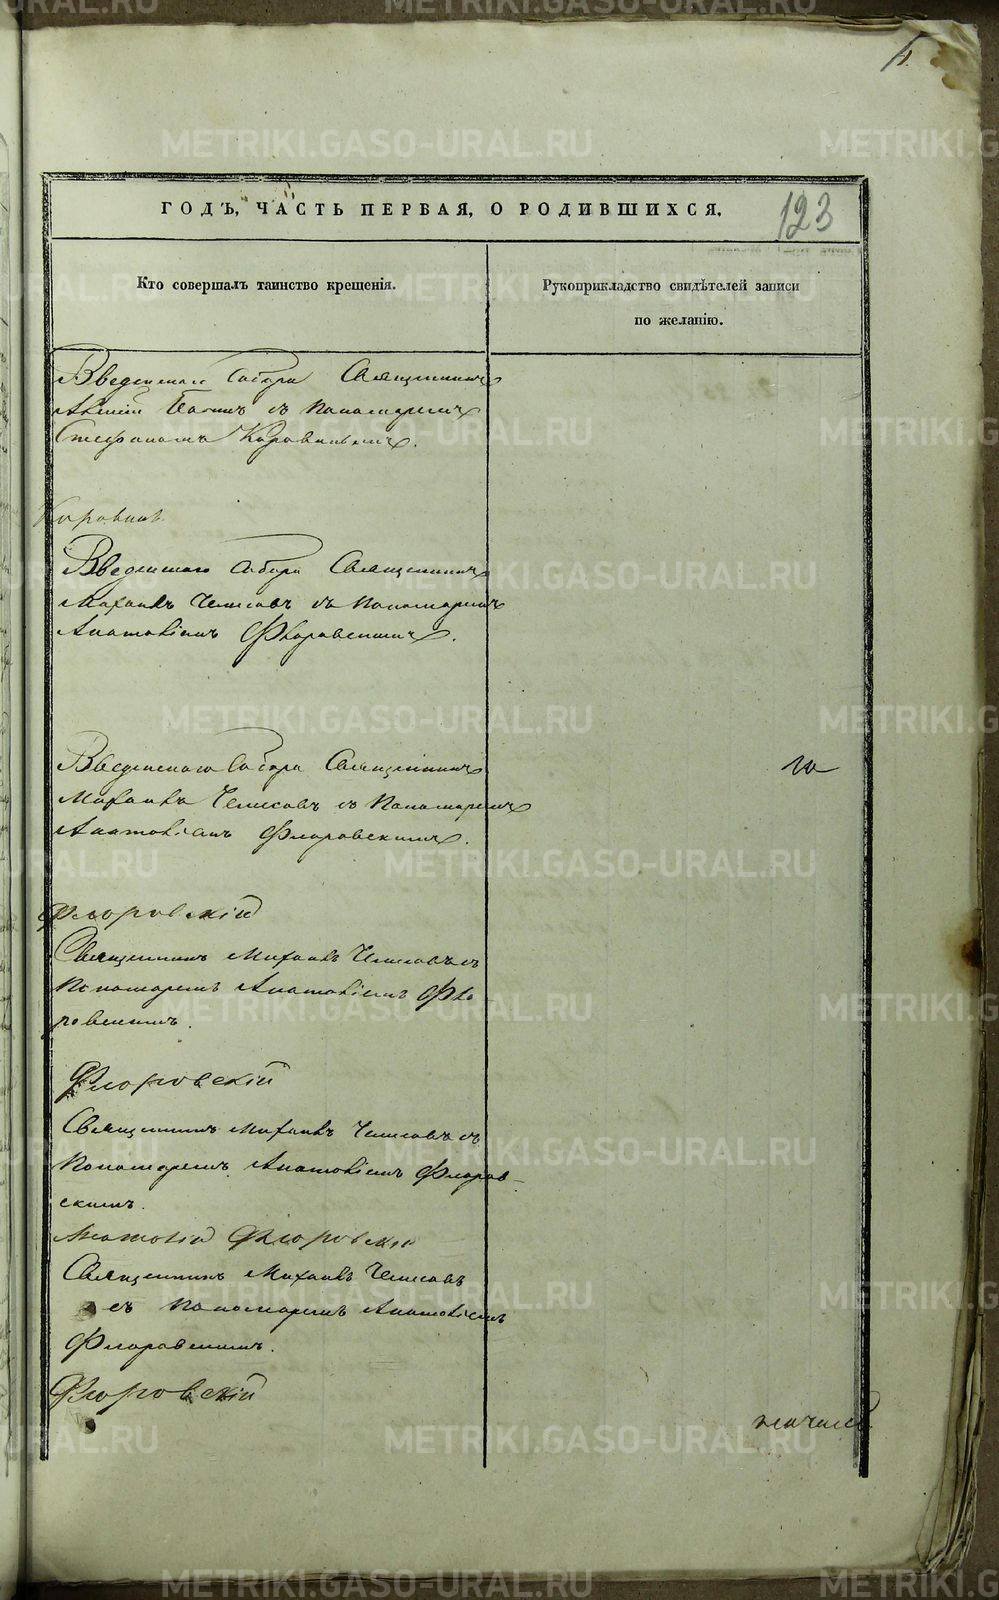 123
ГОДЪ, ЧАСТЬ ПЕРВАЯ, О РОДИВШИХСЯ.
Кто совершалъ таинство крещенія.
Рукоприкладство свидѣтелей записи
по желанію.
Введенскаго Собора Священникъ
съ Пономаремъ
Стефаномъ
Введенскаго Собора Священникъ
Михаилъ съ Пономаремъ
Анатоліемъ Флоровскимъ.
Введенскаго Собора Священникъ
Михаилъ съ Пономаремъ
Анатоліемъ Флоровскимъ.
Флоровскій
Священникъ Михаилъ съ
Пономаремъ Анатоліемъ Фло
ровскимъ.
Флоровскій
Священникъ Михаилъ съ
Пономаремъ Анатоліемъ Флоров-
скимъ.
Анатолій Флоровскій
Священникъ Михаилъ
съ Пономаремъ Анатоліемъ
Флоровскимъ.
Флоровскій
METRIKI.GASO-URAL.RU